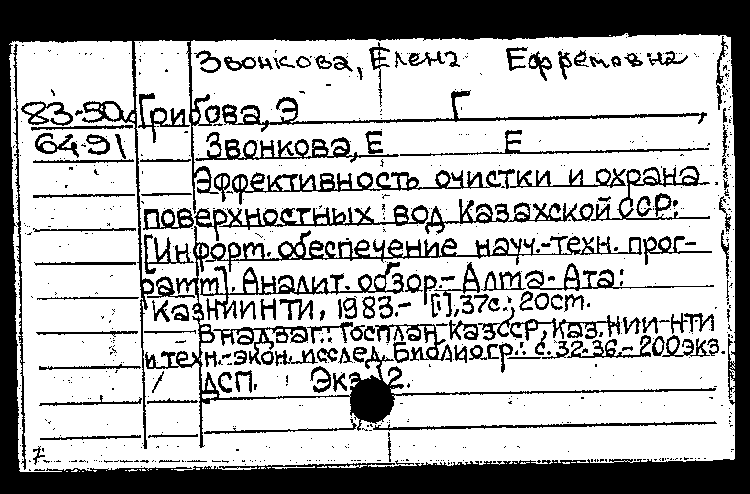 Звонкова, Елена Ефремовна
83-50к Грибова, Э Г ,
64-91 Звонкова, Е Е
Эффективность очистки и охрана
поверхностных вод Казахской ССР:
[Информ. обеспечение науч.-техн. прог-
рамм]. Аналит. обзор.- Алма-Ата:
КазНИИНТИ, 1983.- [1], 37с.; 20см.
В надзаг.: Госплан КазССР, Каз. НИИ НТИ
и техн.-экон. исслед. Библиогр.: с. 32-36.- 200экз.
ДСП. Экз. 12.